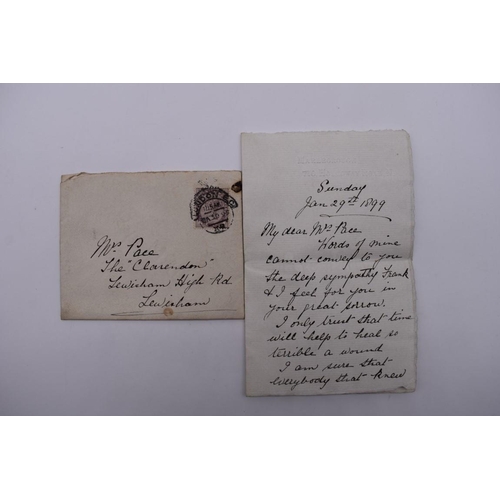 Mrs Pace
The "Clarendon"
Lewisham High Rd.
Lewisham
Sunday
Jan 29th 1899
My dear Mrs Pace
Words of mine
cannot convey to you
the deep sympathy Frank
& I feel for you in
your great sorrow.
I only trust that time
will help to heal so
terrible a wound
I am sure that
everybody that knew